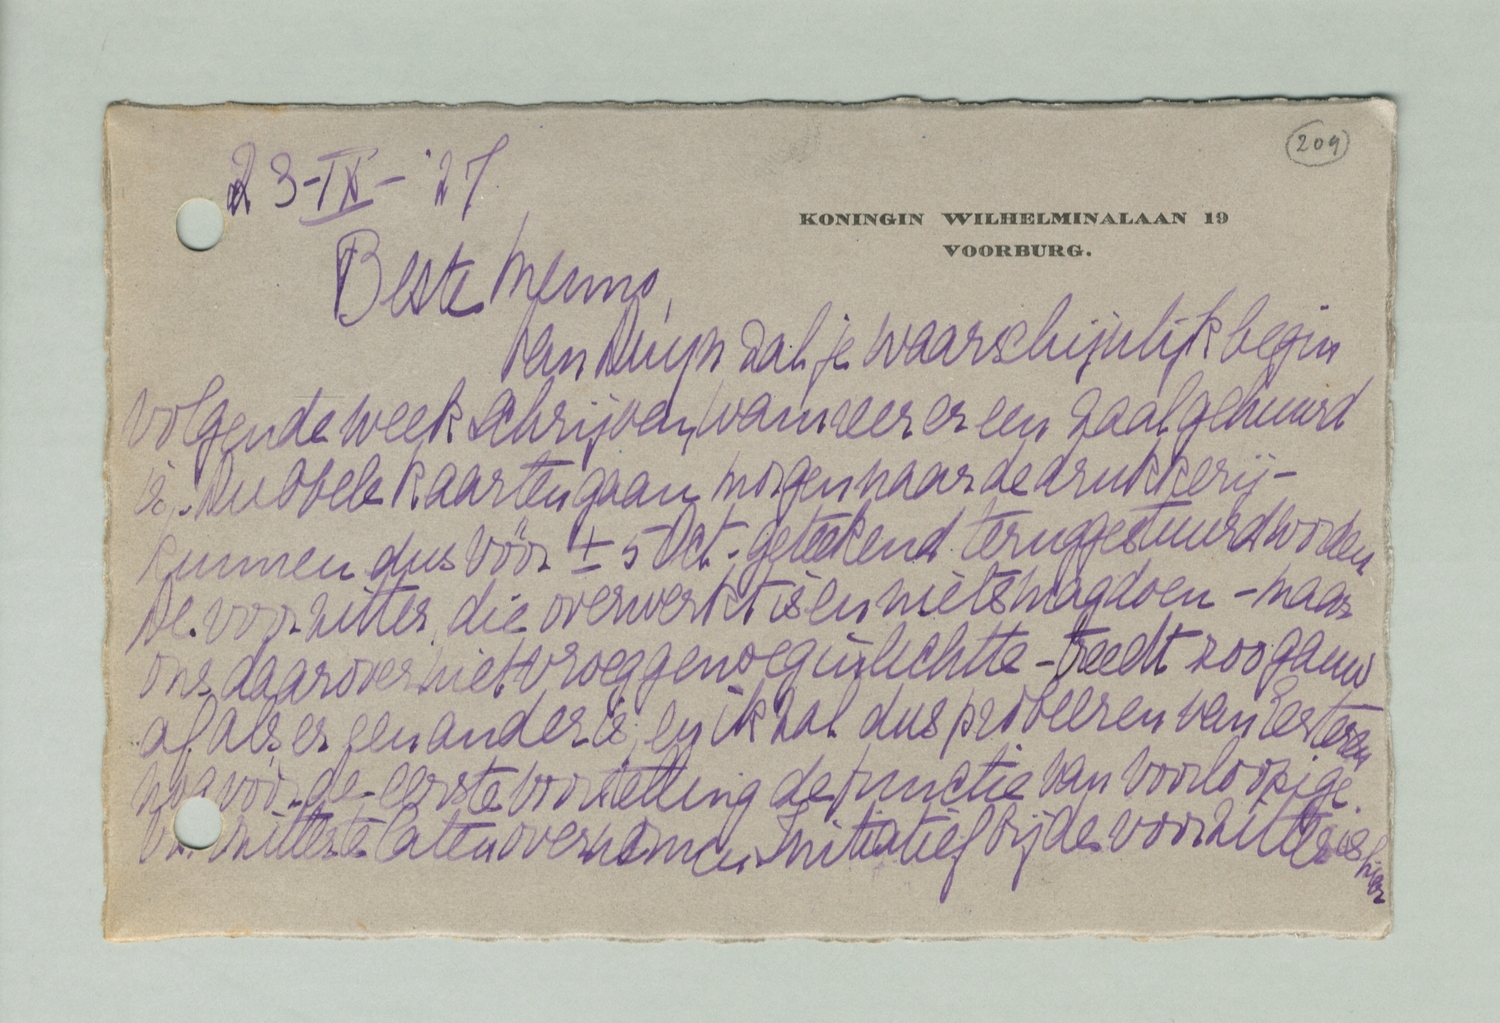 209
23-IX-'27
KONINGIN WILHELMINALAAN 19
VOORBURG.
Beste Menno,
van Duyn zal je waarschijnlijk begin
volgende week schrijven, wanneer er een zaal gehuurd
is. Dubbele kaarten gaan morgen naar de drukkerij-
kunnen dus vóór ± 5 Oct. geteekend teruggestuurd worden
De voorzitter, die overwerkt is en niets mag doen - maar
ons daarover niet vroeg genoeg inlichtte - treedt zoo gauw
af als er een ander is, en ik zal dus probeeren van Eesteren
nog vóór de eerste voorstelling de functie van voorloopige
voorzitter te laten overnemen. Initiatief bij de voorzitter is hier